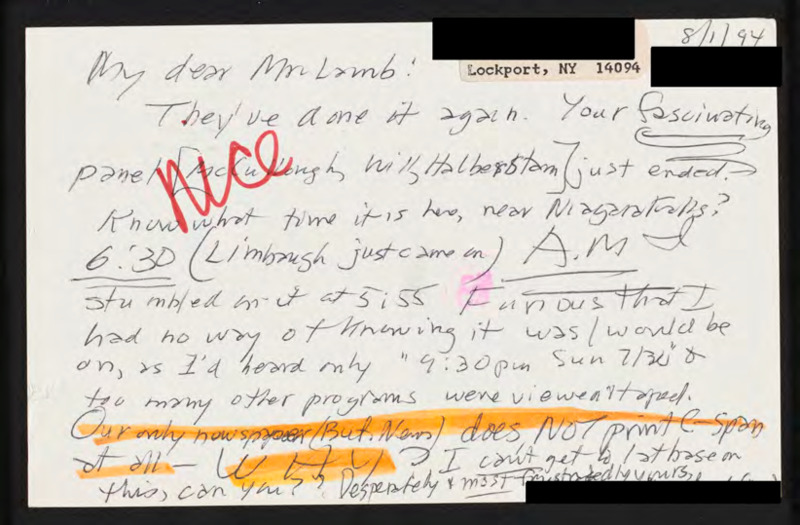 8/1/94
Lockport, NY 14094
My dear Mr. Lamb!
They've done it again. Your fascinating
NICE
panel [McCullough, Wills, Halberstam] just ended.
Know what time it is here, near Niagara Falls?
6:30 (Limbaugh just came on) A.M I
stumbled on it at 5:55 Furious that I
had no way of knowing it was/would be
on, as I'd heard only "9:30pm Sun 7/30" &
too many other programs were viewed/taped.
Our only newspaper (Buf. News) does NOT print C-Span
at all — WHY? I can't get to 1st base on
this, can you? Desperately & most frustratedly yours,